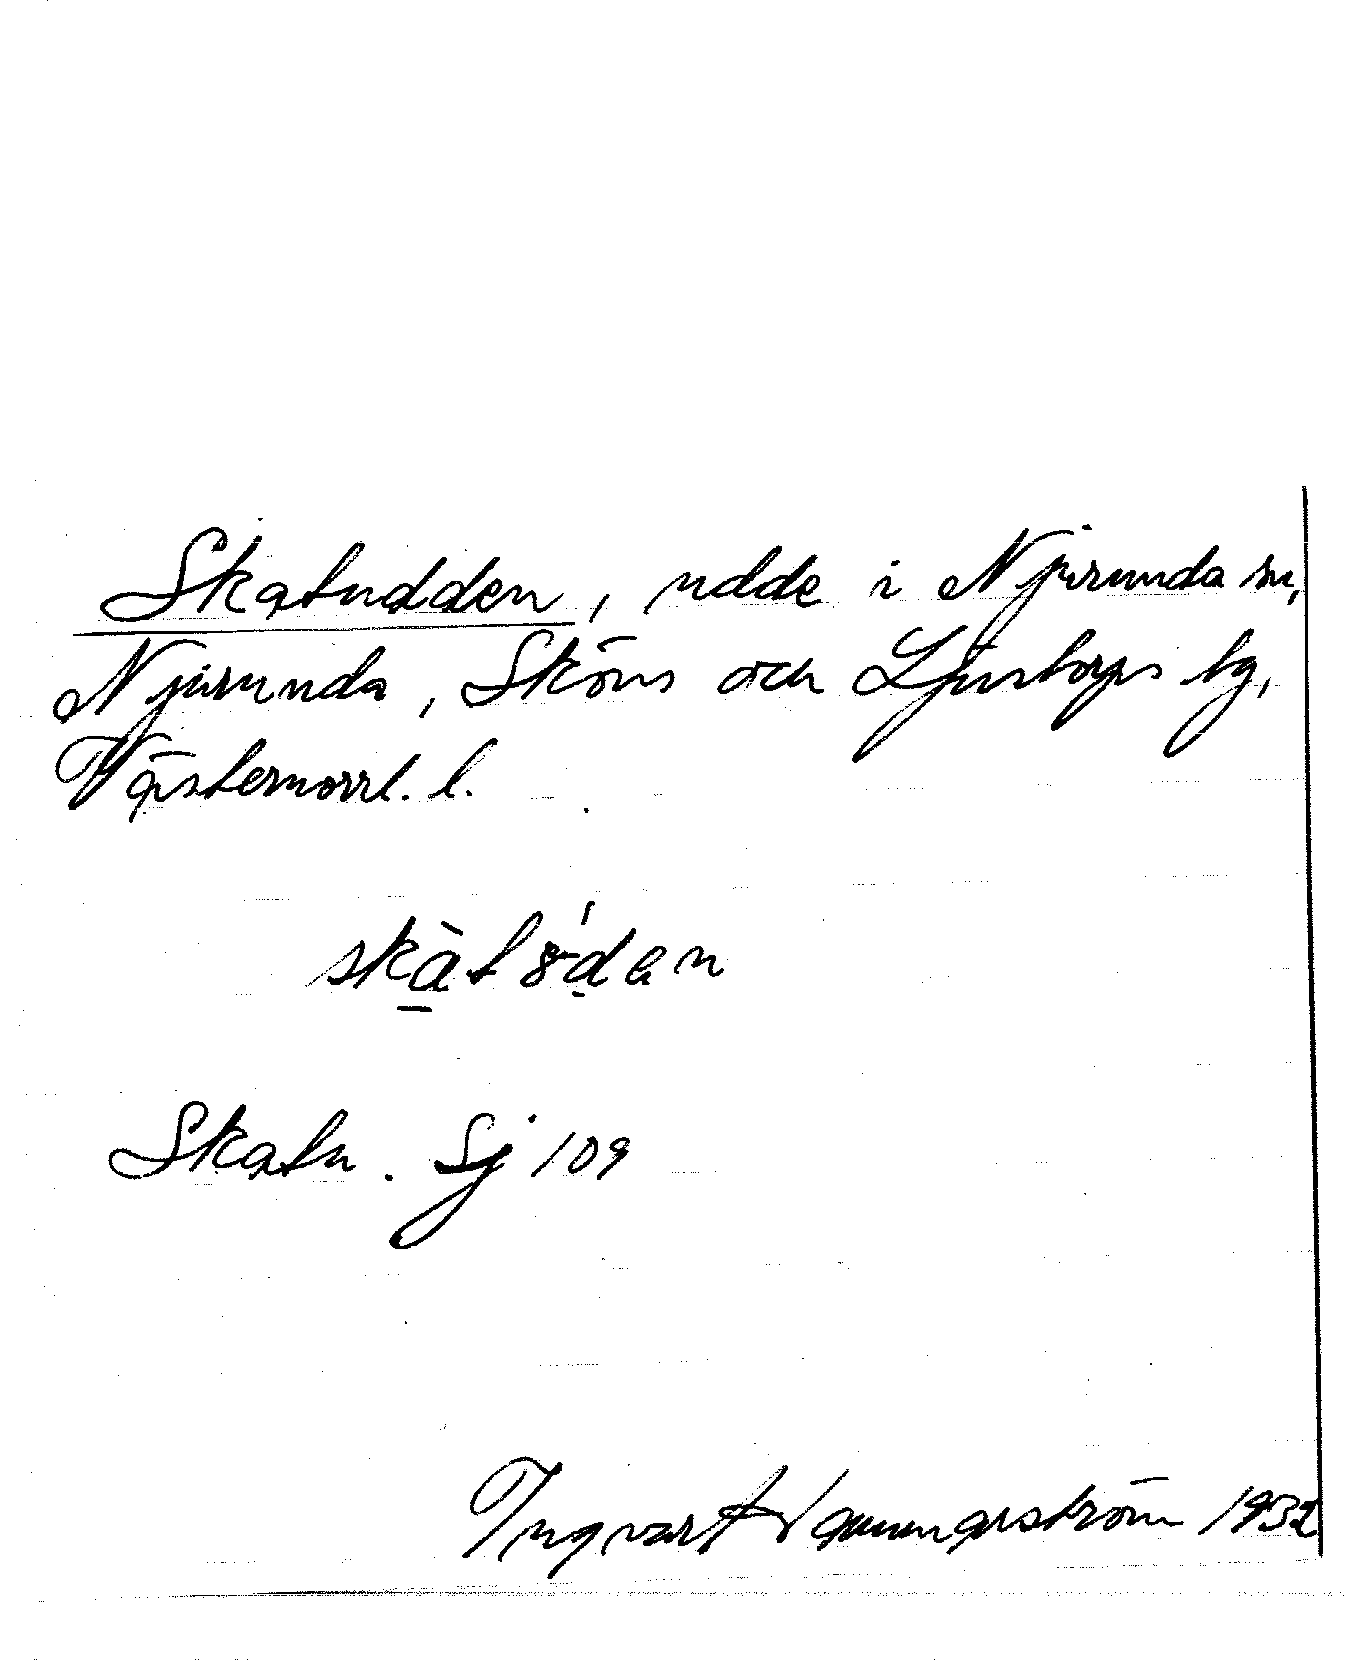 Skatudden, udde i Njurunda sn,
Njurunda, Sköns och Ljustorps tg,
Västernorrl. l.
Skatu. Sj 109
Ingvar Hammarström 1932